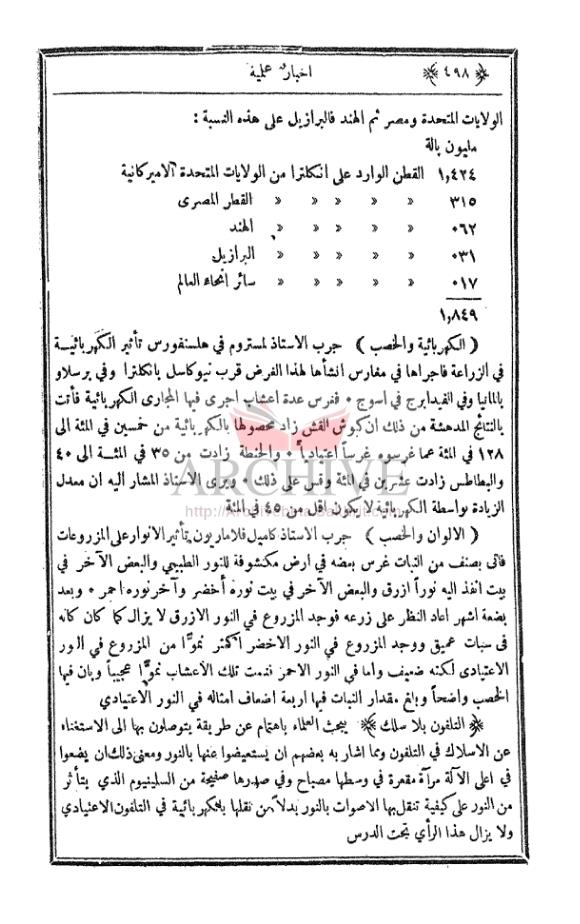 ﴿ ٤٩٨ ﴾ اخبار علمية
الولايات المتحدة ومصر ثم الهند فالبرازيل على هذه النسبة :
مليون بالة
١,٤٢٤ القطن الوارد على انكلترا من الولايات المتحدة الاميركانية
٣١٥ » » » » » القطر المصرى
٠٦٢ » » » » » الهند
٠٣١ » » » » » البرازيل
٠١٧ » » » » » سائر انحاء العالم
١,٨٤٩
( الكهربائية والخصب ) جرب الاستاذ لمستروم في هلسنفورس تأثير الكهربائيـــة
في الزراعة فاجراها في مغارس انشأها لهذا الغرض قرب نيوكاسل بانكلترا وفي برسلاو
بالمانيا وفي الفيدابرج في اسوج • فغرس عدة اعشاب اجرى فيها المجارى الكهربائية فأتت
بالنتائج المدهشة من ذلك ان كبوش القش زاد محصولها بالكهربائية من خمسين في المئة الى
١٢٨ في المئة عما غرسوه غرساً اعتيادياً • والحنطة زادت من ٣٥ في المئـــة الى ٤٠
والبطاطس زادت عشرين في المئة وقس على ذلك • ويرى الاستاذ المشار اليه ان معدل
الزيادة بواسطة الكهربائية لا يكون اقل من ٤٥ في المئة
( الالوان والخصب ) جرب الاستاذ كاميل فلاماريون تأثير الانوار على المزروعات
فاتى بصنف من النبات غرس بعضه في ارض مكشوفة للنور الطبيعي والبعض الآخر في
بيت انفذ اليه نوراً ازرق والبعض الآخر في بيت نوره أخضر وآخر نوره احمر • وبعد
بضعة اشهر اعاد النظر على زرعه فوجد المزروع في النور الازرق لا يزال كما كان كانه
فى سبات عميق ووجد المزروع في النور الاخضر اكثر نموًّا من المزروع في النور
الاعتيادى لكنه ضعيف واما في النور الاحمر فنمت تلك الاعشاب نموًّا عجيباً وبان فيها
الخصب واضحاً وبلغ مقدار النبات فيها اربعة اضعاف امثاله في النور الاعتيادي
﴿ التلفون بلا سلك ﴾ يبحث العلماء باهتمام عن طريقة يتوصلون بها الى الاستغناء
عن الاسلاك في التلفون ومما اشار به بعضهم ان يستعيضوا عنها بالنور ومعنى ذلك ان يضعوا
في اعلى الآلة مرآة مقعرة في وسطها مصباح وفي صدرها صفيحة من السلينيوم الذي يتأثر
من النور على كيفية تنقل بها الاصوات بالنور بدلاً من نقلها بالكهربائية في التلفون الاعتيادي
ولا يزال هذا الرأي تحت الدرس
ARCHIVE